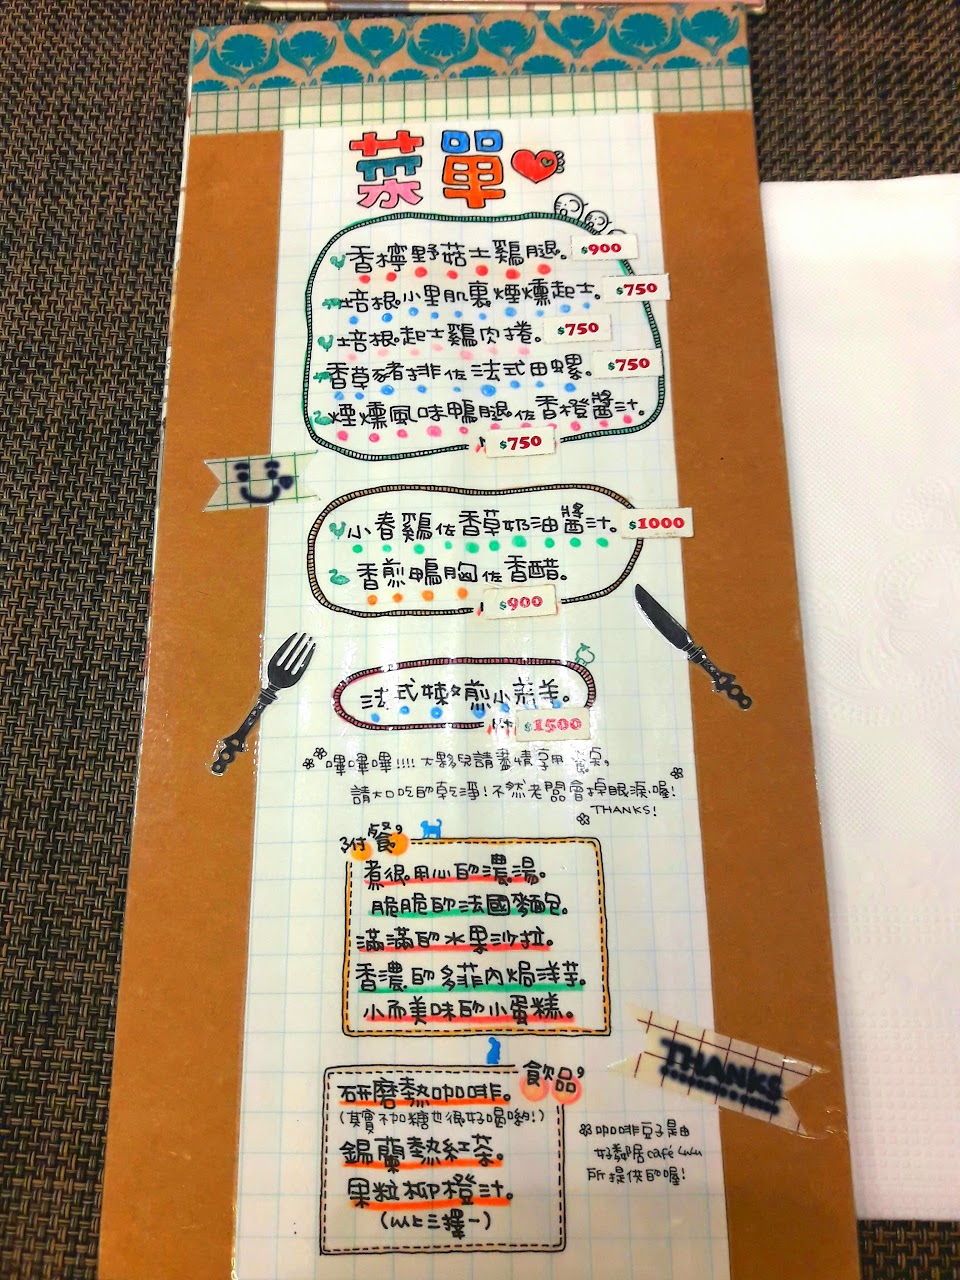 菜單
香檸野菇土鷄腿。 $900
培根小里肌裹煙燻起士。 $750
培根起士鷄肉捲。 $750
香草豬排佐法式田螺。 $750
煙燻風味鴨腿佐香橙醬汁。
$750
小春鷄佐香草奶油醬汁。 $1000
香煎鴨胸佐香醋。
$900
法式嫩煎小羔羊。
$1500
嗶嗶嗶!!!! 大夥兒請盡情享用餐桌,
請大口吃的乾淨!不然老闆會掉眼淚喔!
THANKS!
附餐,
煮很用心的濃湯。
脆脆的法國麵包。
滿滿的水果沙拉。
香濃的多菲內焗洋芋。
小而美味的小蛋糕。
THANKS
飲品,
研磨熱咖啡。
(其實不加糖也很好喝喲!)
錫蘭熱紅茶。
果粒柳橙汁。
(以上三擇一)
咖啡豆子是由
好鄰居café Lulu
所提供的喔!